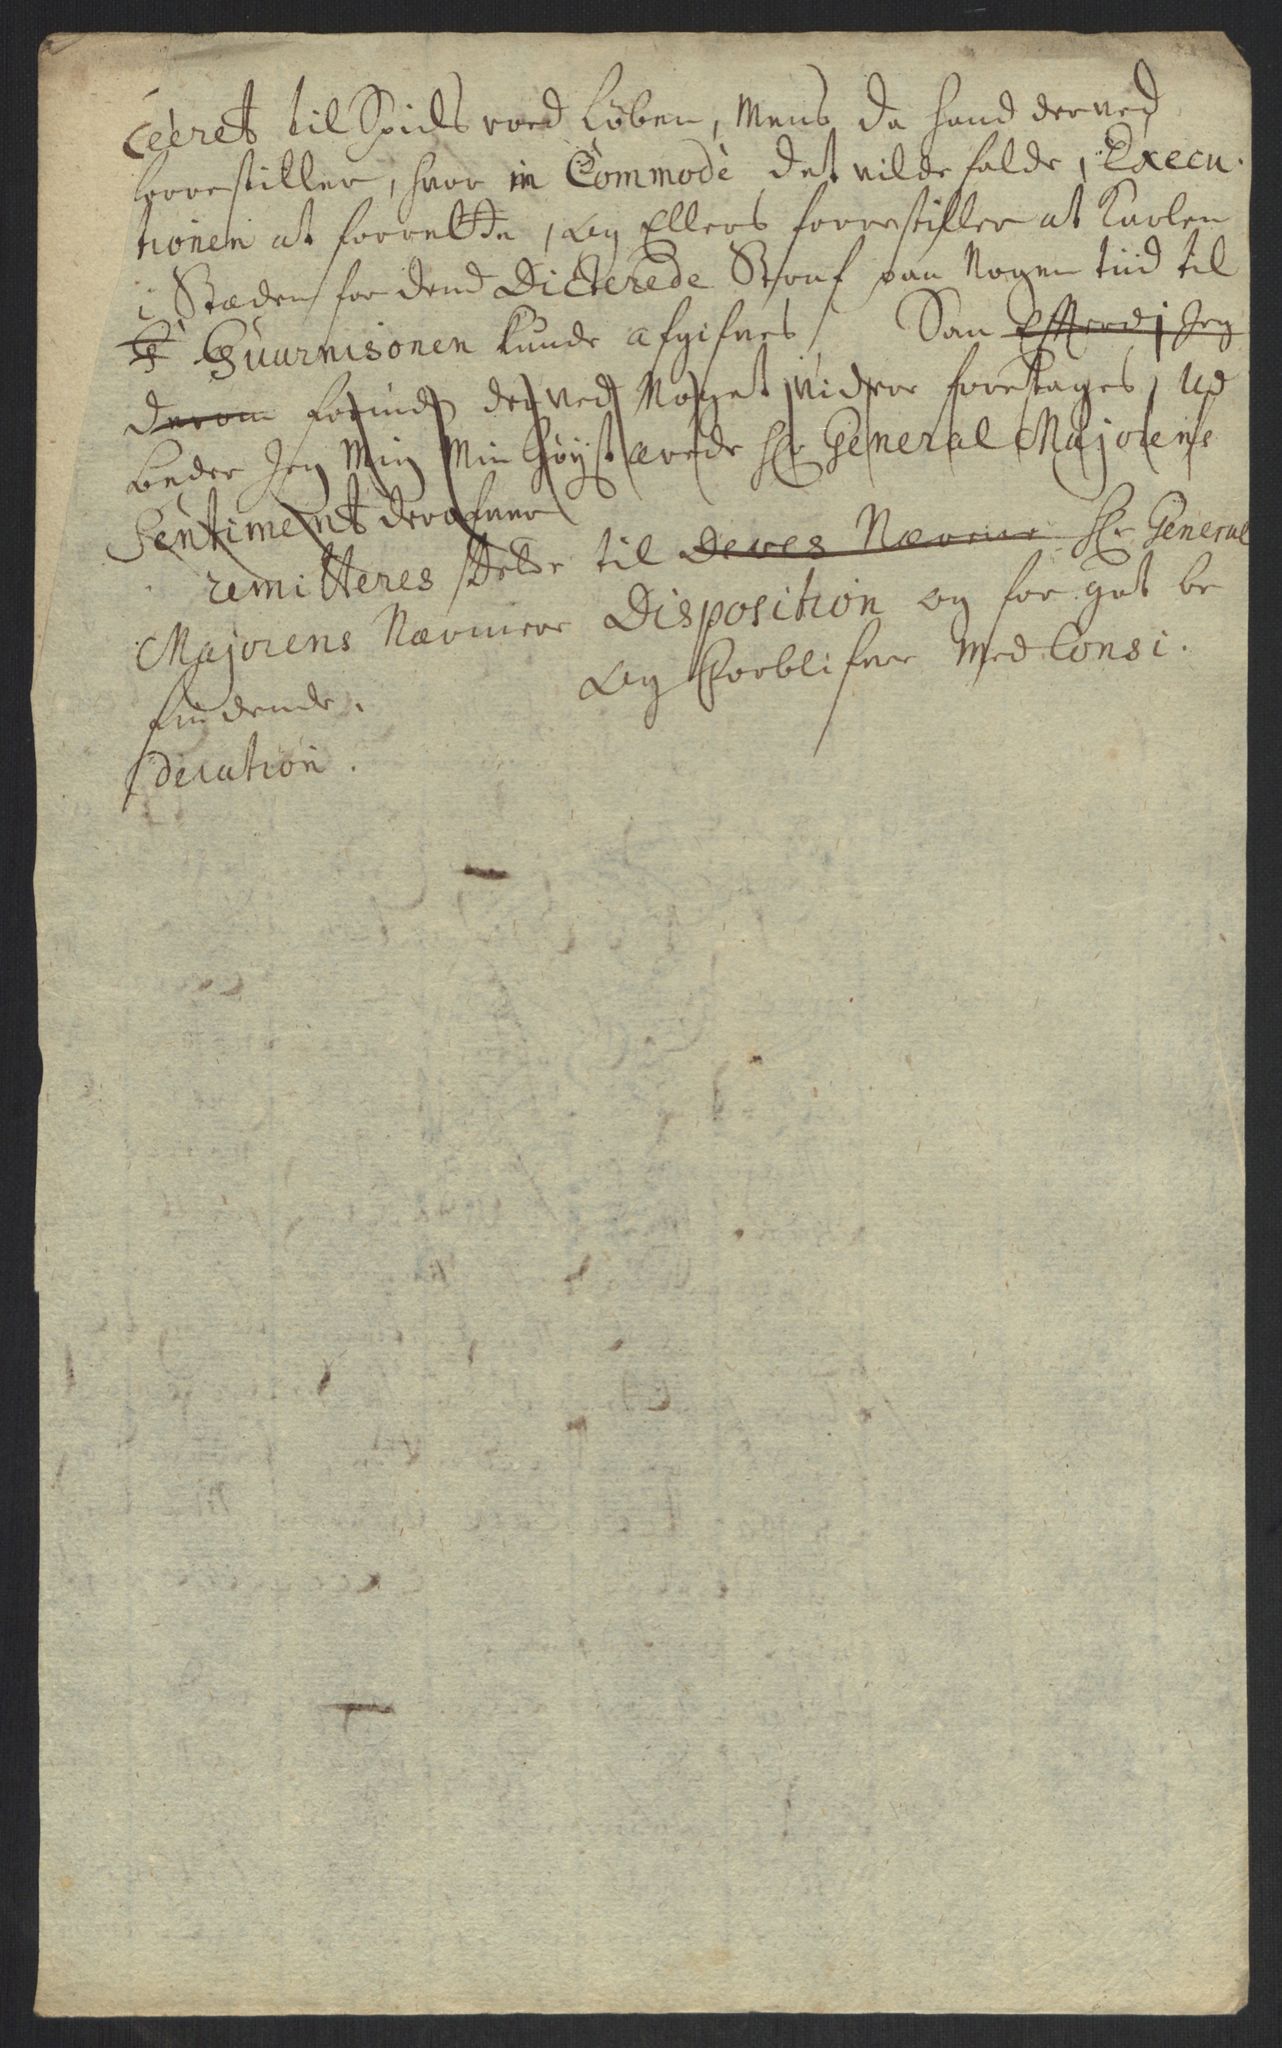 ceeret til Spids roed Løben, Mens da hand derved
forrestiller, hvor in Commode det vilde falde, Execu-
tionen at forrette, og Ellers forrestiller at Karlen
i Stæden for dend Dicterede Straf paa Nogen tiid til
Guarnisonen kunde afgifves / Saa efterdi Jeg
derom forind derved Noget videre foretages, ud
beder Jeg Mig Min Høyst ærede Hr General Majorens
Sentiment derofver
remitteres dette til Deres Nærmere Hr General
Majorens Nærmere Disposition og for got be
findende. og Forblifver Med Consi-
deration.